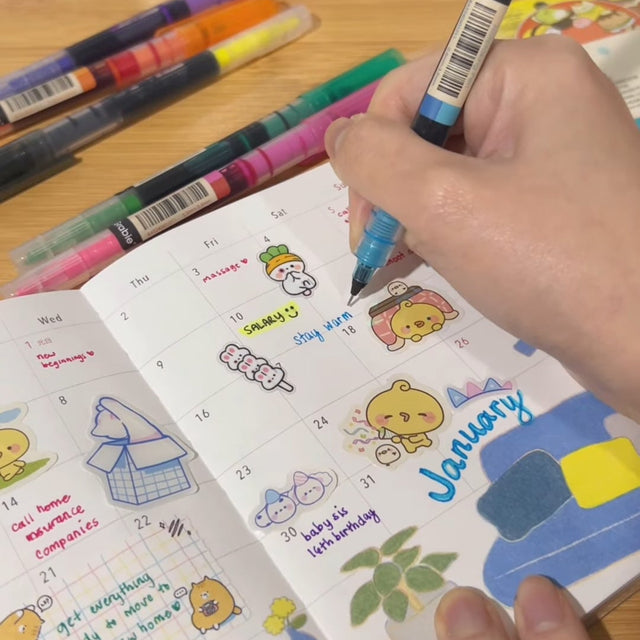 Wed
Thu
Fri
Sat
1
new
beginnings
2
3
massage
4
5
8
9
10
SALARY
Stay warm
14
call home
insurance
companies
16
18
21
get everything
to move to
home
22
23
24
26
30
baby sis
16th birthday
31
January